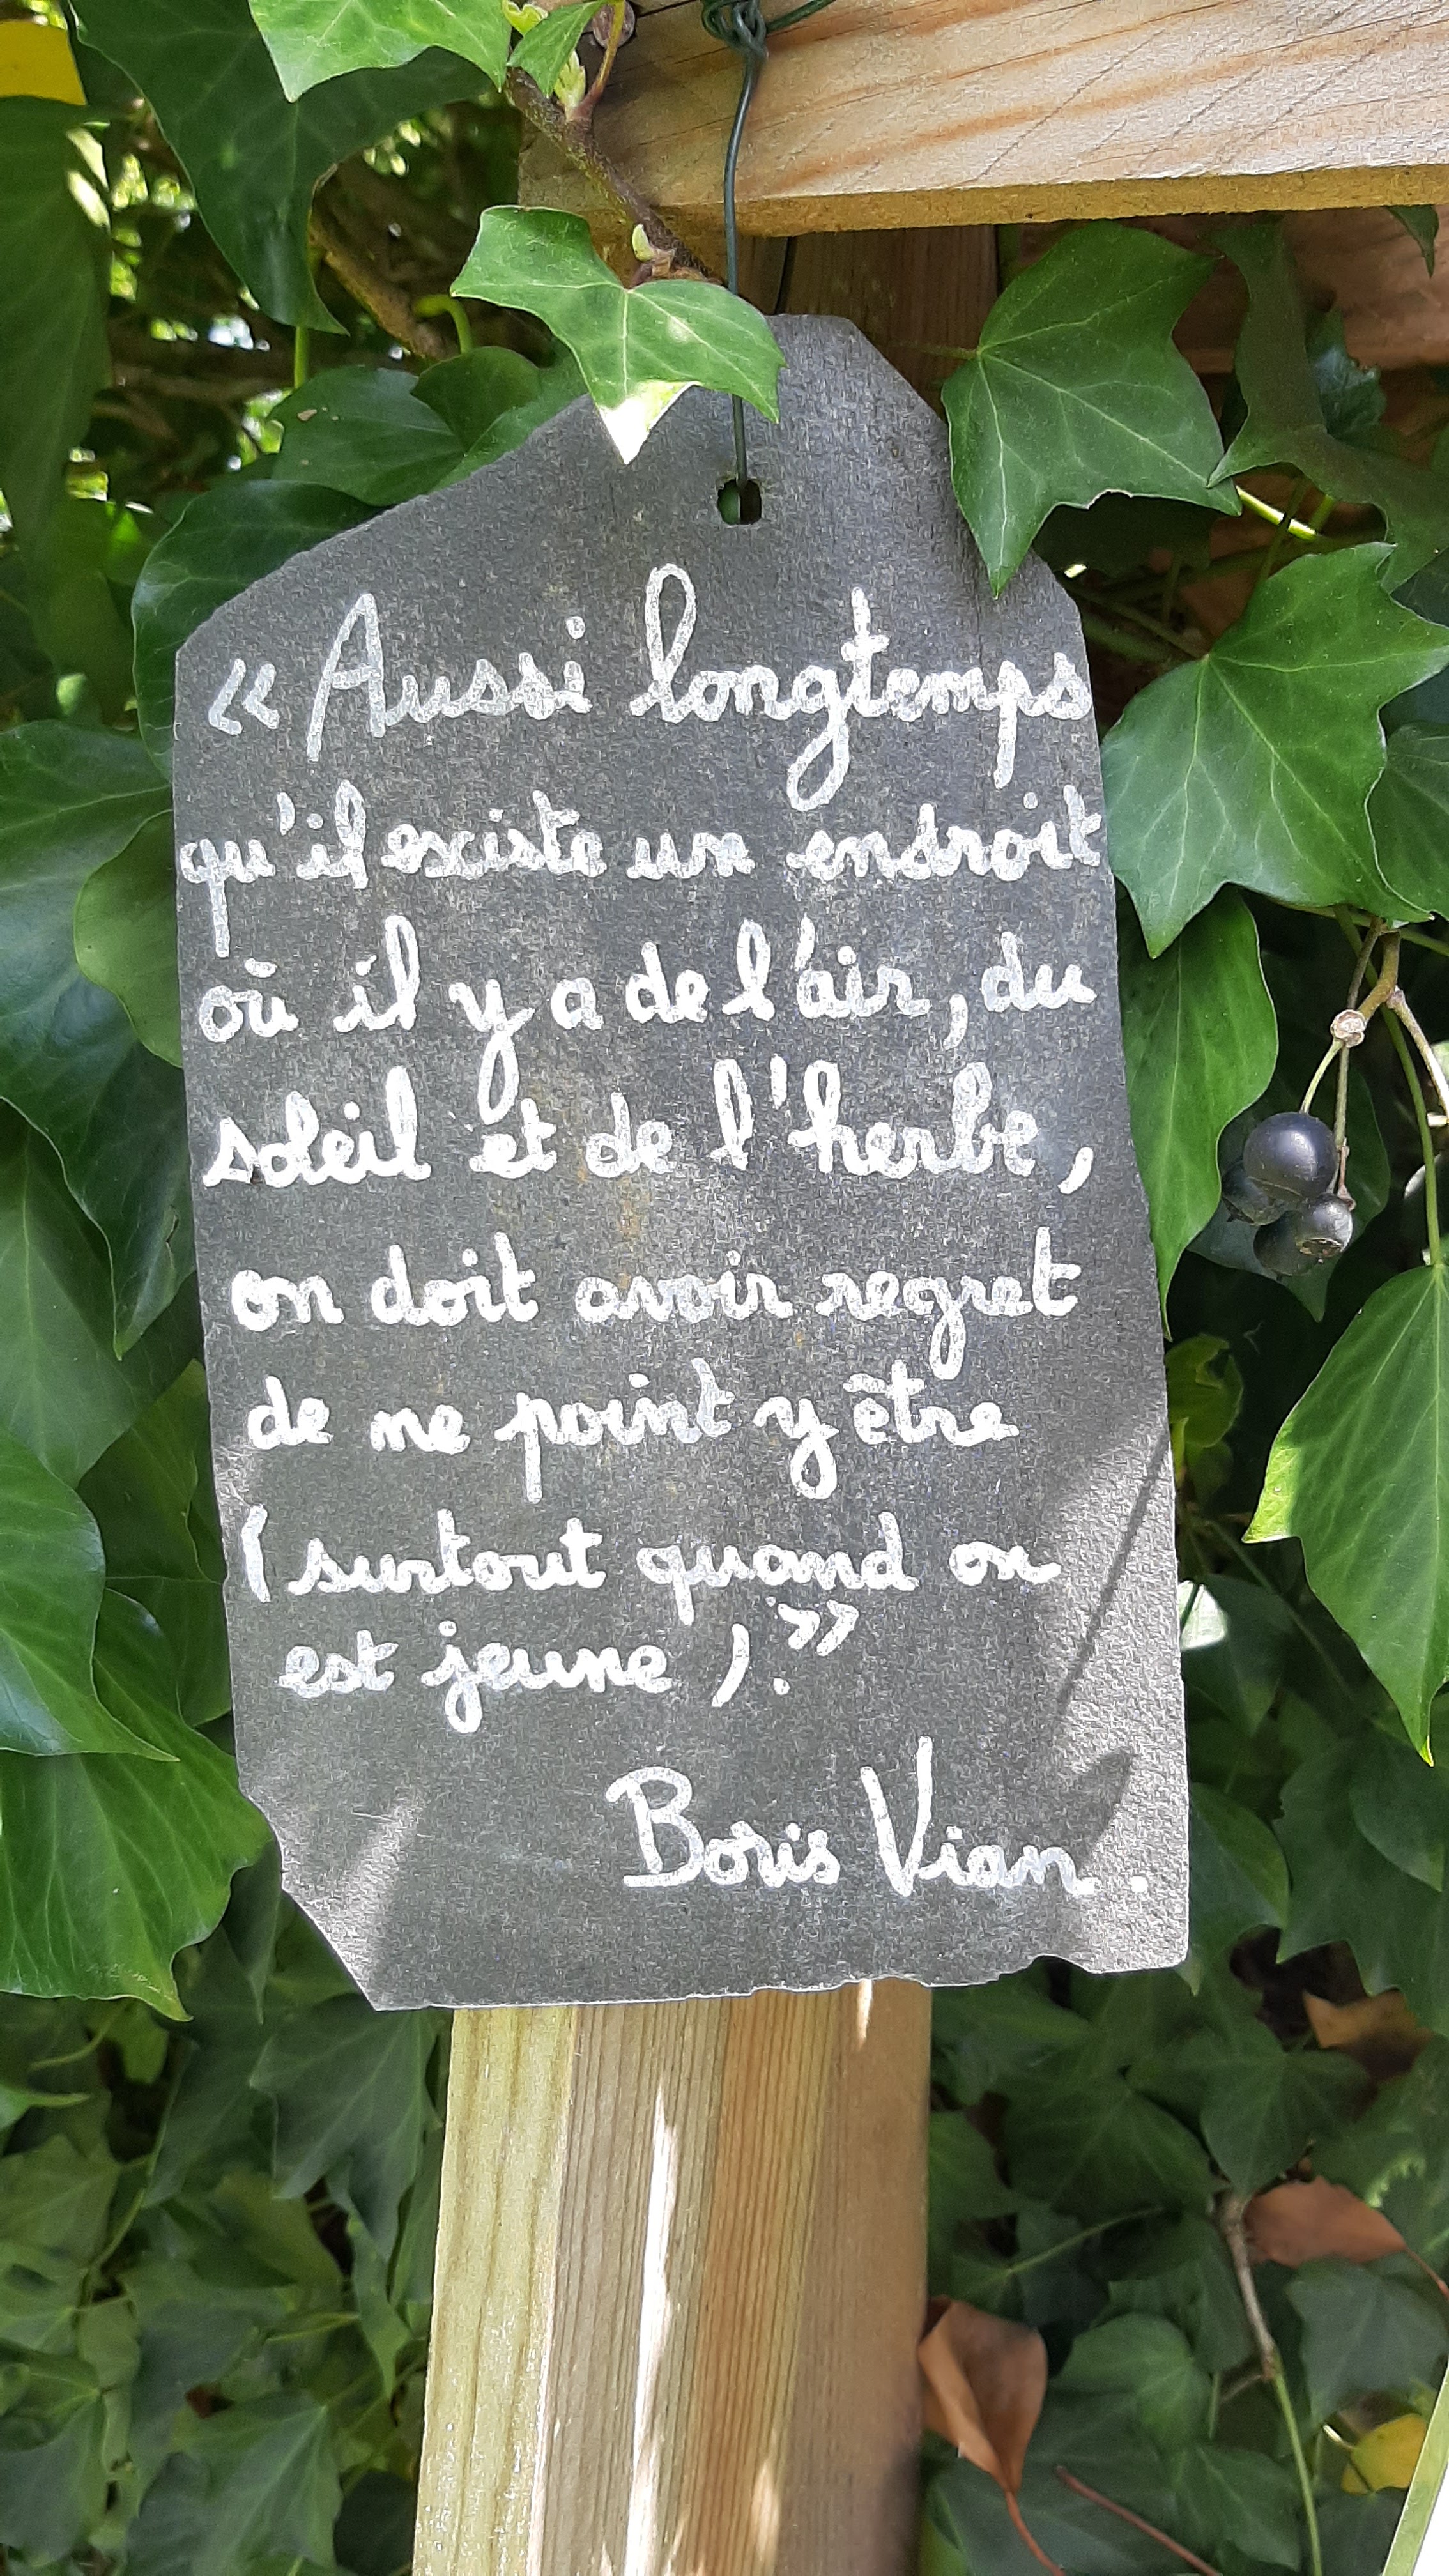 « Aussi longtemps
qu'il existe un endroit
où il y a de l'air, du
soleil et de l'herbe,
on doit avoir regret
de ne point y être
(surtout quand on
est jeune ). »
Boris Vian.